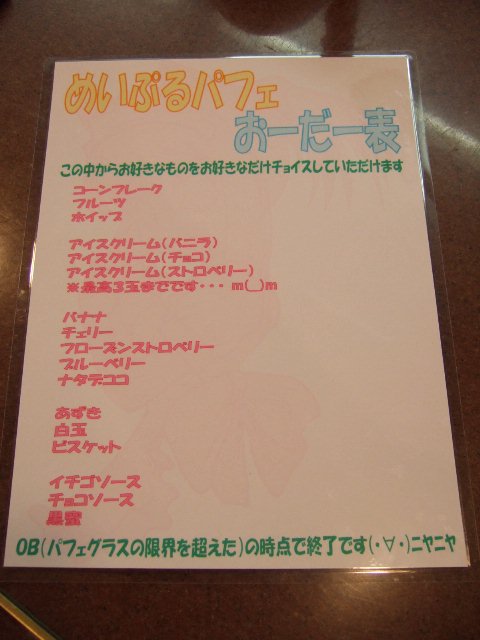 めいぷるパフェ
おーだー表
この中からお好きなものをお好きなだけチョイスしていただけます
コーンフレーク
フルーツ
ホイップ
アイスクリーム(バニラ)
アイスクリーム(チョコ)
アイスクリーム(ストロベリー)
※最高3玉までです・・・ m(_)m
バナナ
チェリー
フローズンストロベリー
ブルーベリー
ナタデココ
あずき
白玉
ビスケット
イチゴソース
チョコソース
黒蜜
OB(パフェグラスの限界を超えた)の時点で終了です(・∀・)ニヤニヤ